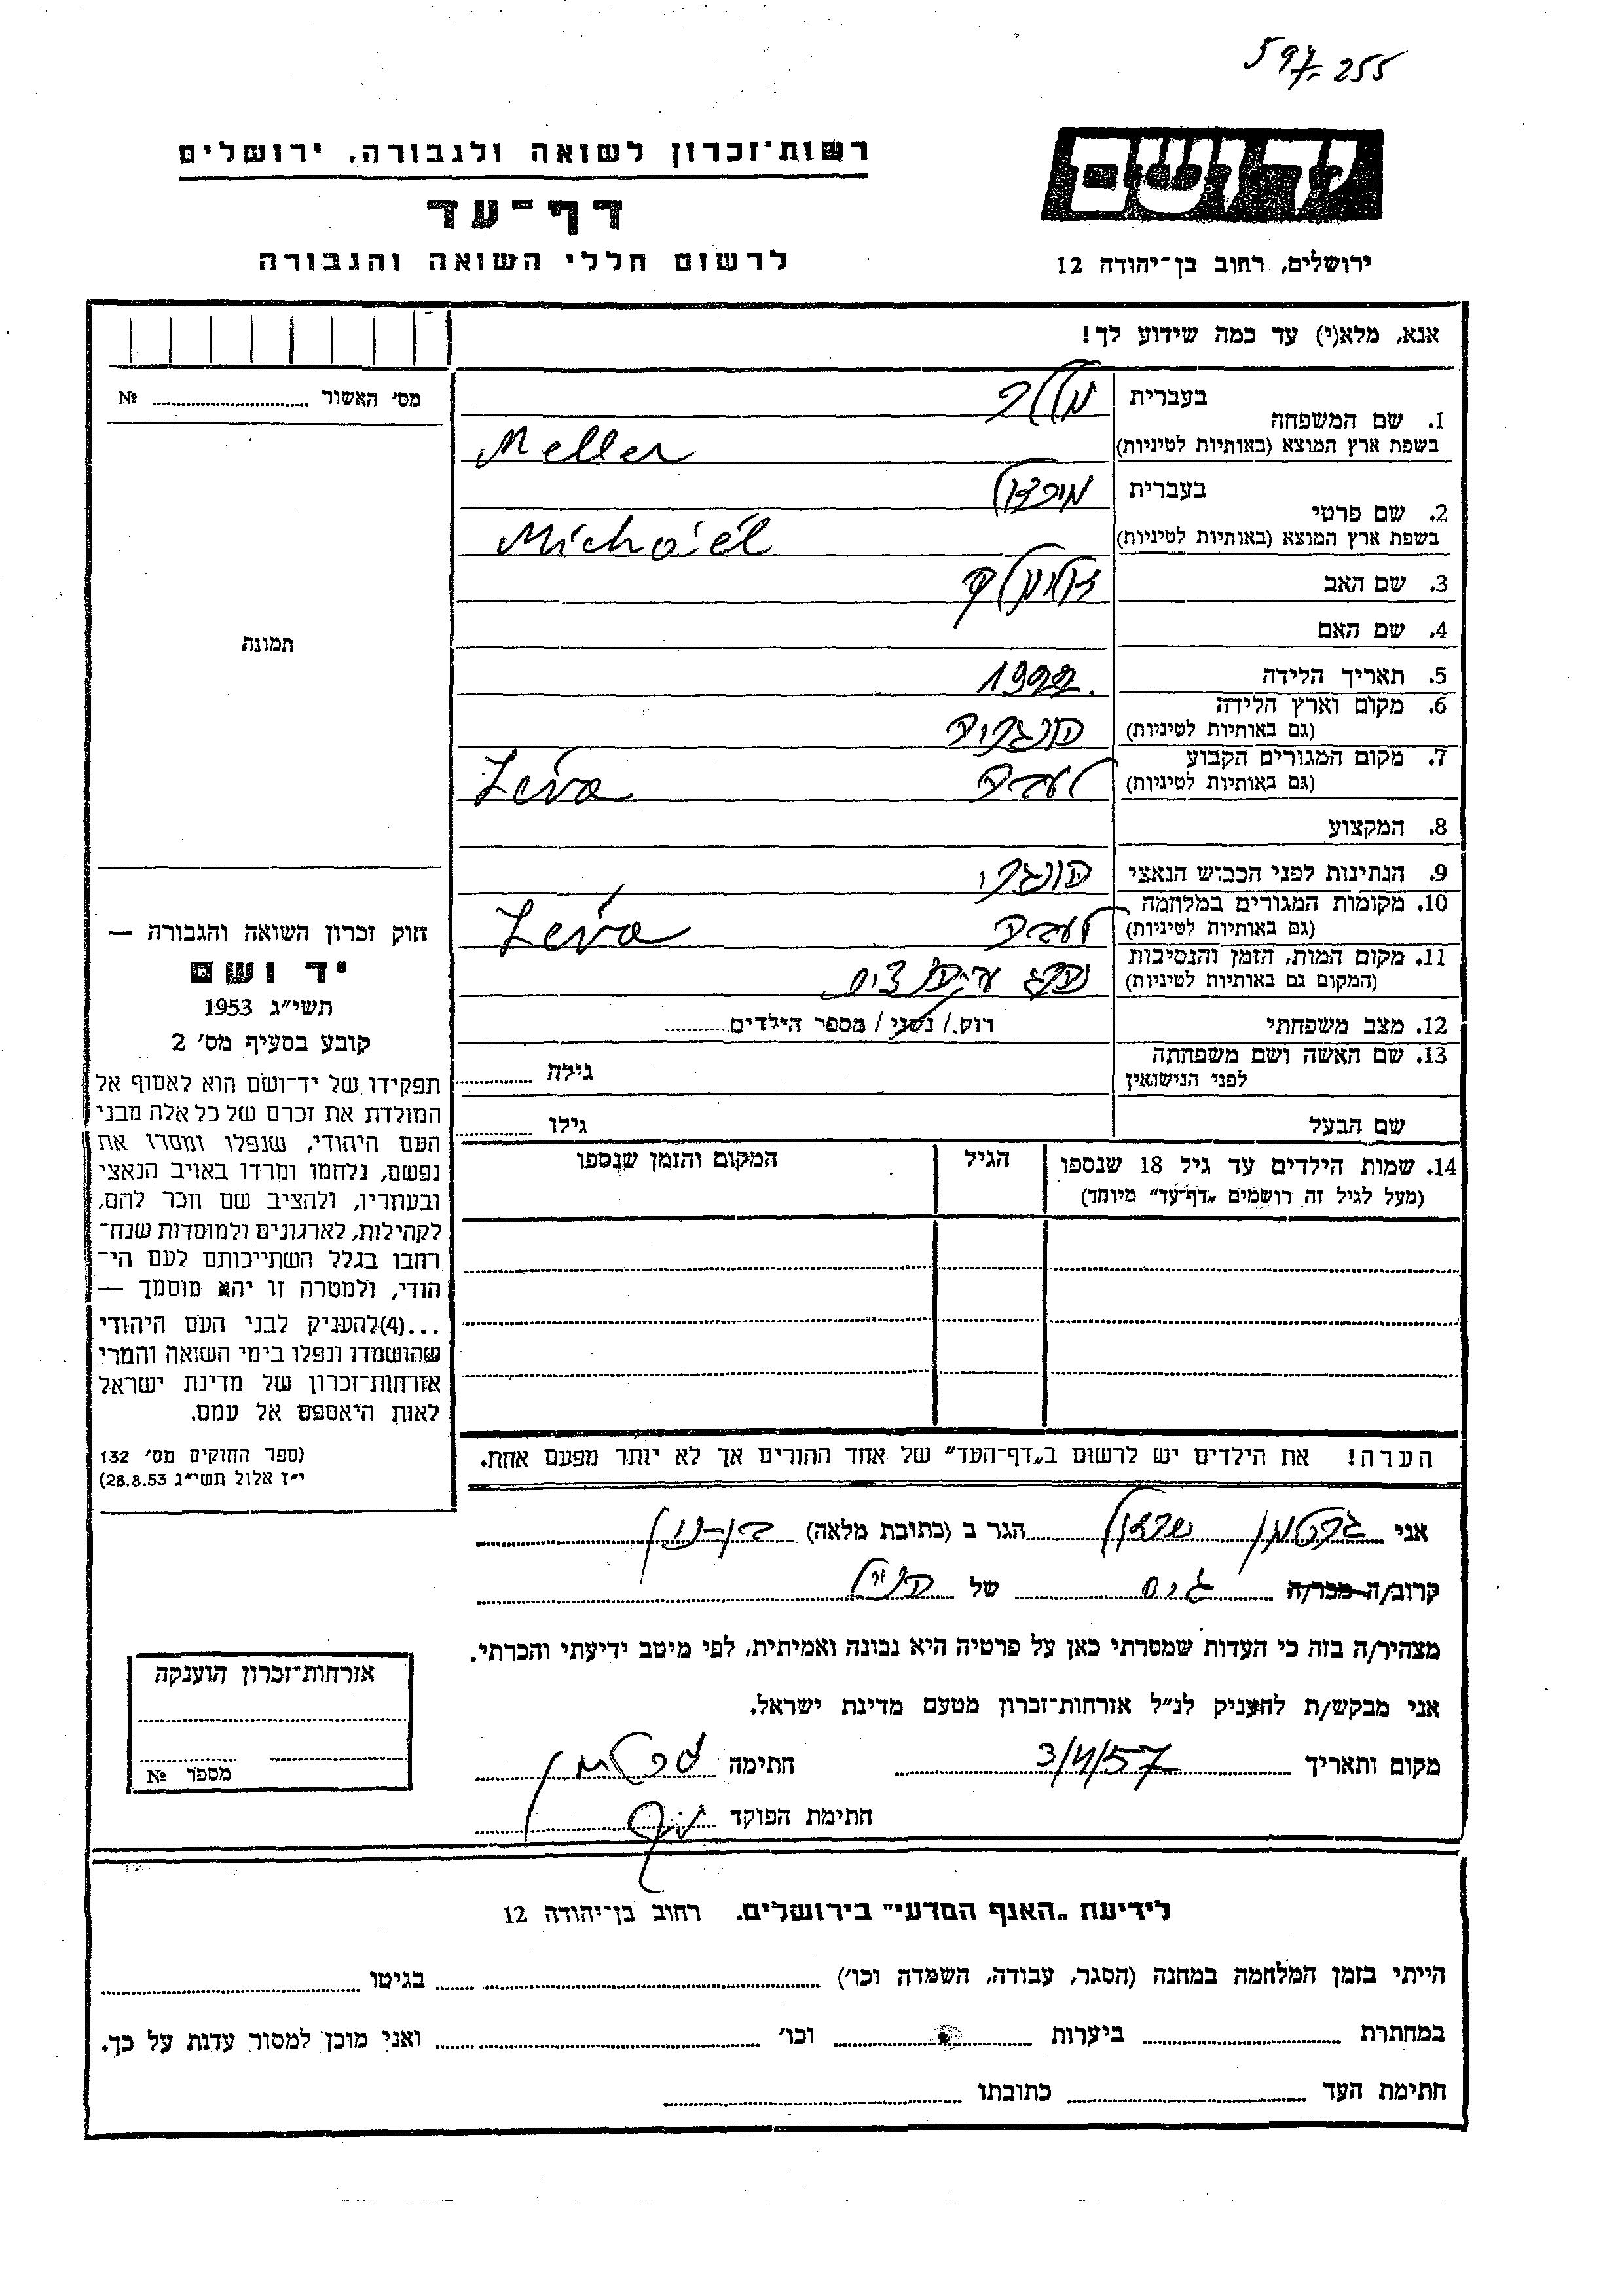 597-255
ידושם
רשות־זכרון לשואה ולגבורה, ירושלים
דף־עד
לרשום חללי השואה והגבורה
ירושלים, רחוב בן־יהודה 12
אנא, מלא(י) עד כמה שידוע לך!
מס׳ האשור № 
תמונה
1. שם המשפחה
בעברית מלר
בשפת ארץ המוצא (באותיות לטיניות) Meller
2. שם פרטי
בעברית
בשפת ארץ המוצא (באותיות לטיניות) Michaél
3. שם האב
4. שם האם
5. תאריך הלידה 1922.
6. מקום וארץ הלידה
(גם באותיות לטיניות) הונגריה
7. מקום המגורים הקבוע
(גם באותיות לטיניות) Léva
8. המקצוע
9. הנתינות לפני הכבוש הנאצי הונגרי
10. מקומות המגורים במלחמה
(גם באותיות לטיניות) Léva
11. מקום המות, הזמן והנסיבות
(המקום גם באותיות לטיניות)
12. מצב משפחתי רווק / נשוי / מספר הילדים
13. שם האשה ושם משפחתה
לפני הנישואין גילה
שם הבעל גילו
14. שמות הילדים עד גיל 18 שנספו הגיל המקום והזמן שנספו
(מעל לגיל זה רושמים „דף־עד״ מיוחד)
הערה! את הילדים יש לרשום ב„דף־העד״ של אחד ההורים אך לא יותר מפעם אחת.
חוק זכרון השואה והגבורה —
יד ושם
תשי״ג 1953
קובע בסעיף מס׳ 2
תפקידו של יד־ושם הוא לאסוף אל
המולדת את זכרם של כל אלה מבני
העם היהודי, שנפלו ומסרו את
נפשם, נלחמו ומרדו באויב הנאצי
ובעוזריו, ולהציב שם וזכר להם,
לקהילות, לארגונים ולמוסדות שנח־
רבו בגלל השתייכותם לעם הי־
הודי, ולמטרה זו יהא מוסמך —
...(4)להעניק לבני העם היהודי
שהושמדו ונפלו בימי השואה והמרי
אזרחות־זכרון של מדינת ישראל
לאות היאספם אל עמם.
(ספר החוקים מס׳ 132
י״ז אלול תשי״ג 28.8.53)
אני הגר ב (כתובת מלאה)
קרוב/ה מכר/ה של
מצהיר/ה בזה כי העדות שמסרתי כאן על פרטיה היא נכונה ואמיתית, לפי מיטב ידיעתי והכרתי.
אני מבקש/ת להעניק לנ״ל אזרחות־זכרון מטעם מדינת ישראל.
מקום ותאריך חתימה
חתימת הפוקד
אזרחות־זכרון הוענקה
מספר №
לידיעת „האגף המדעי״ בירושלים. רחוב בן־יהודה 12
הייתי בזמן המלחמה במחנה (הסגר, עבודה, השמדה וכו׳) בגיטו
במחתרת ביערות וכו׳ ואני מוכן למסור עדות על כך.
חתימת העד כתובתו